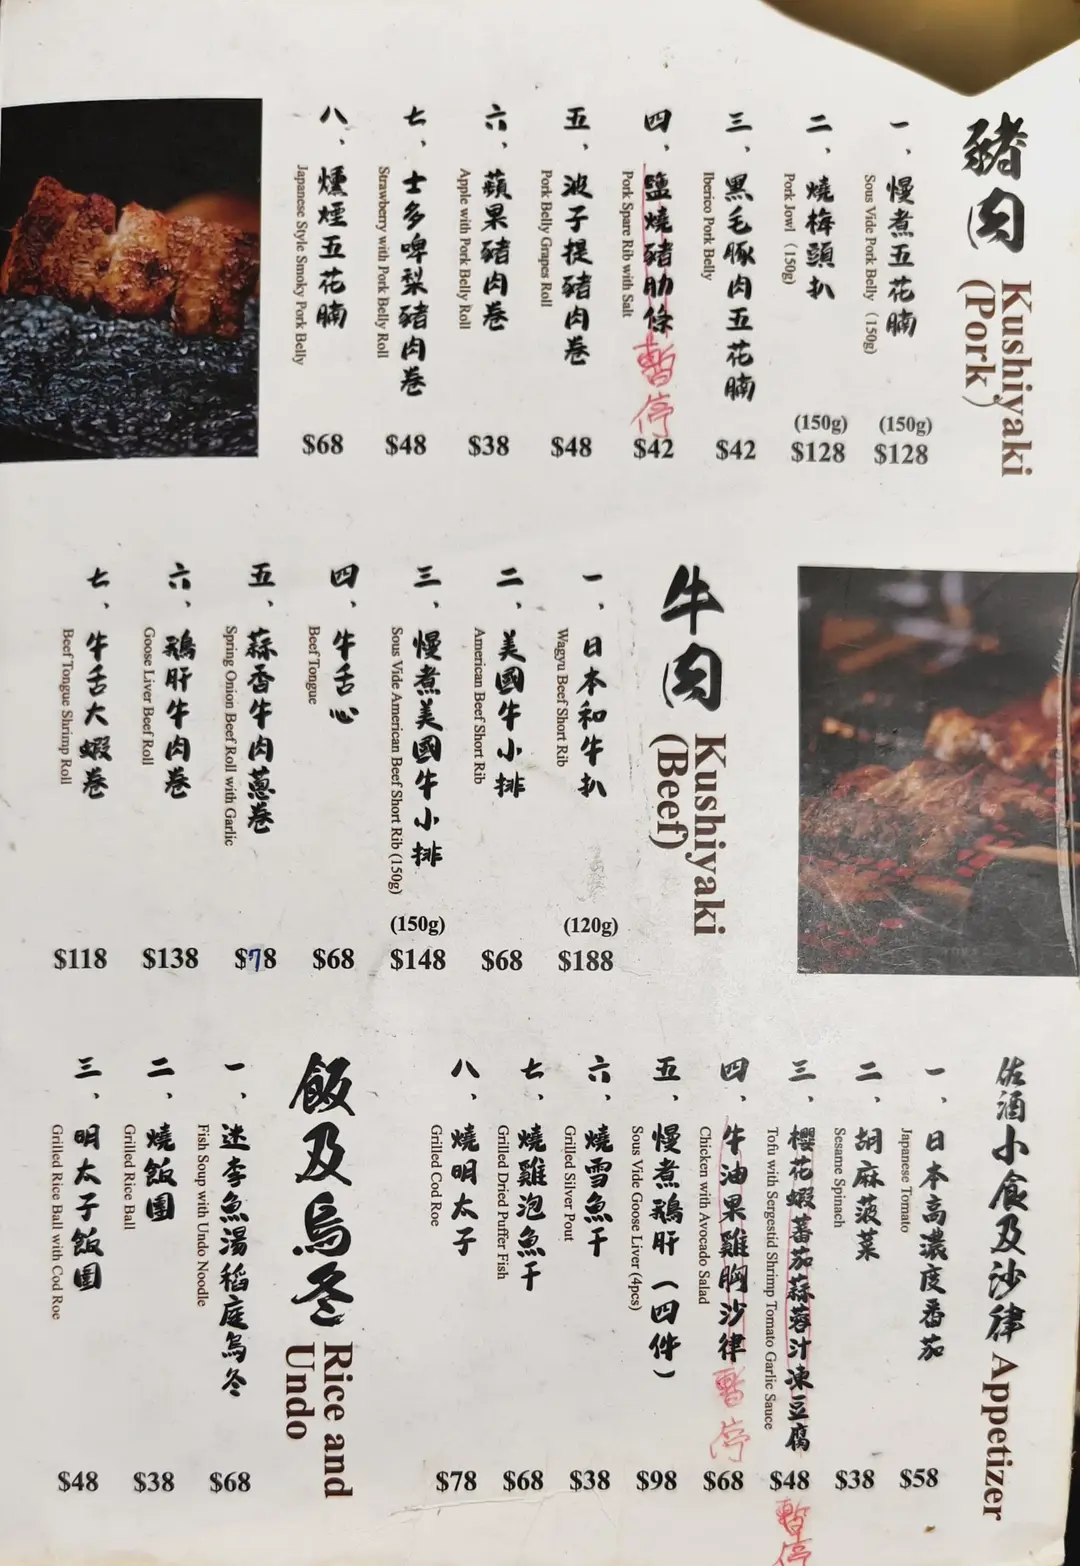 豬肉 Kushiyaki
(Pork)
一、慢煮五花腩
Sous Vide Pork Belly (150g)
(150g)
$128
二、燒梅頭扒
Pork Jowl (150g)
(150g)
$128
三、黑毛豚肉五花腩
Iberico Pork Belly
$42
四、鹽燒豬肋條 暫停
Pork Spare Rib with Salt
$42
五、波子提豬肉卷
Pork Belly Grapes Roll
$48
六、蘋果豬肉卷
Apple with Pork Belly Roll
$38
七、士多啤梨豬肉卷
Strawberry with Pork Belly Roll
$48
八、燻煙五花腩
Japanese Style Smoky Pork Belly
$68
牛肉 Kushiyaki
(Beef)
一、日本和牛扒
Wagyu Beef Short Rib
(120g)
$188
二、美國牛小排
American Beef Short Rib
$68
三、慢煮美國牛小排
Sous Vide American Beef Short Rib (150g)
(150g)
$148
四、牛舌心
Beef Tongue
$68
五、蒜香牛肉蔥卷
Spring Onion Beef Roll with Garlic
$78
六、鵝肝牛肉卷
Goose Liver Beef Roll
$138
七、牛舌大蝦卷
Beef Tongue Shrimp Roll
$118
佐酒小食及沙律 Appetizer
一、日本高濃度番茄
Japanese Tomato
$58
二、胡麻菠菜
Sesame Spinach
$38
三、櫻花蝦蕃茄蒜蓉汁凍豆腐
Tofu with Sergestid Shrimp Tomato Garlic Sauce
$48 暫停
四、牛油果雞胸沙律 暫停
Chicken with Avocado Salad
$68
五、慢煮鵝肝（四件）
Sous Vide Goose Liver (4pcs)
$98
六、燒雪魚干
Grilled Silver Pout
$38
七、燒雞泡魚干
Grilled Dried Puffer Fish
$68
八、燒明太子
Grilled Cod Roe
$78
飯及烏冬 Rice and
Undo
一、迷李魚湯稻庭烏冬
Fish Soup with Undo Noodle
$68
二、燒飯團
Grilled Rice Ball
$38
三、明太子飯團
Grilled Rice Ball with Cod Roe
$48